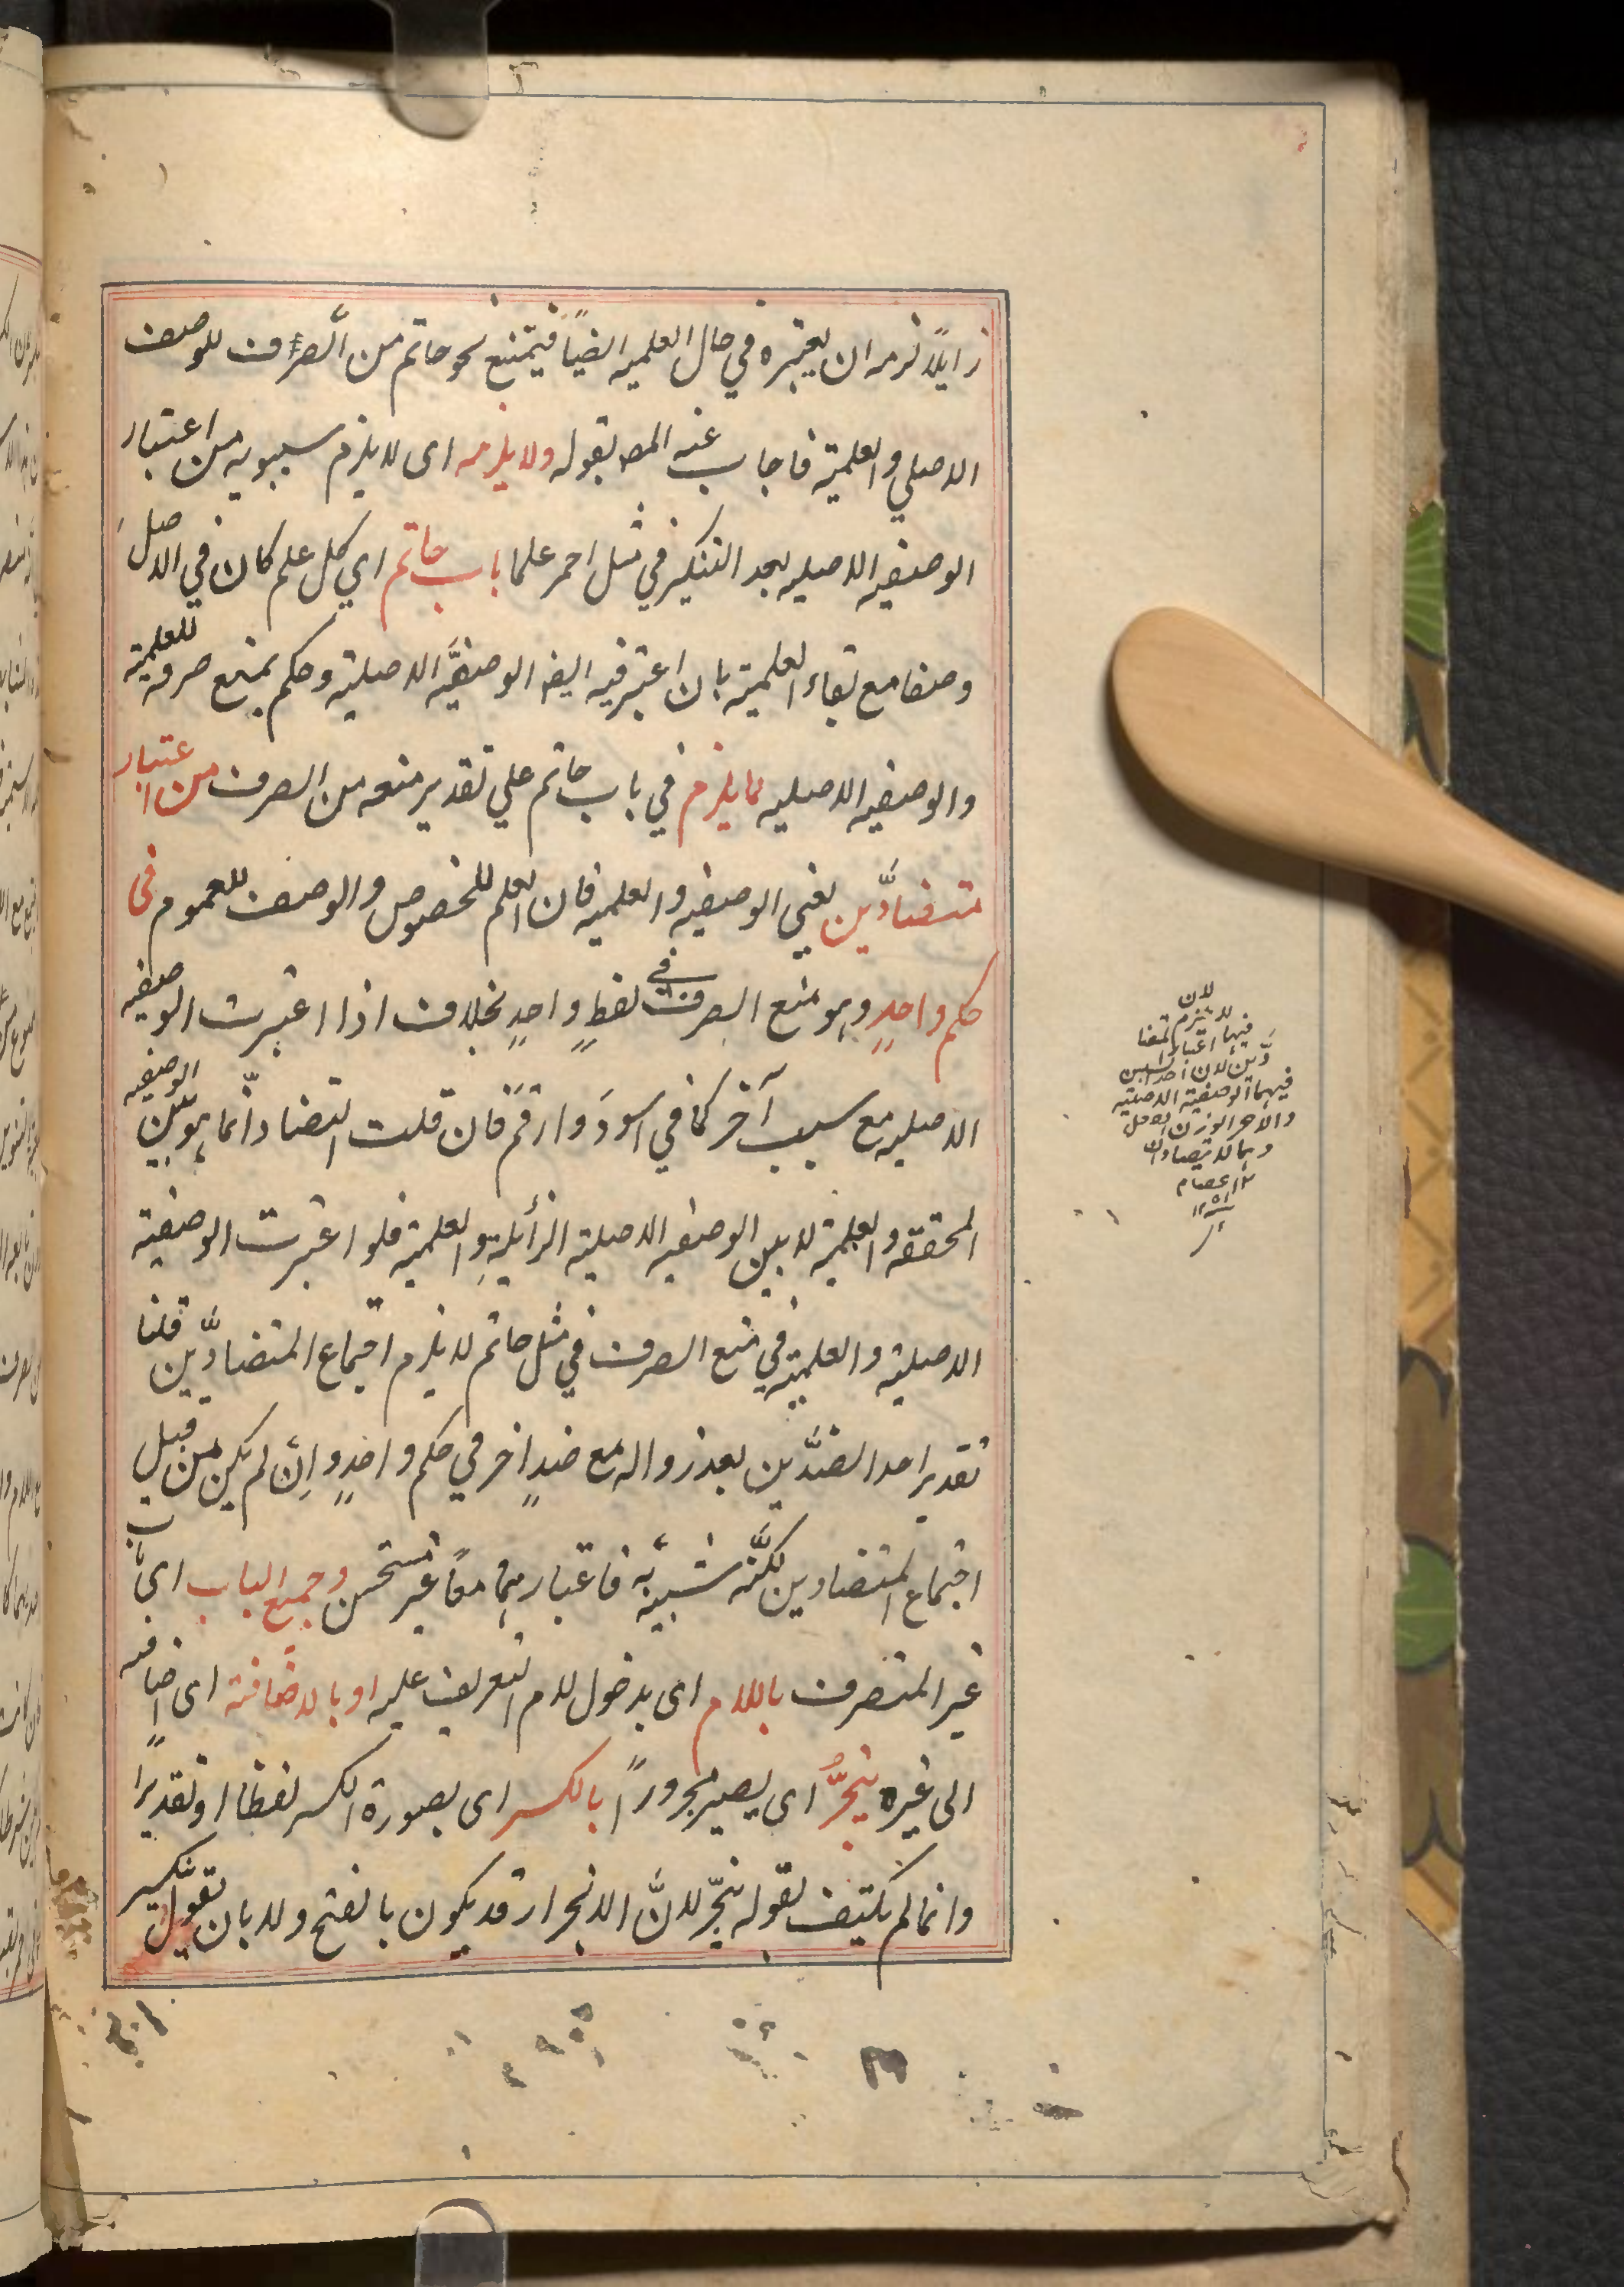 زايلاً لزمه ان يعتبره في حال العلميه ايضاً فيمتنع نحو حاتم من الصرف للوصف
الاصلي والعلمية فاجاب عنه المص بقوله ولا يلزمه اى لا يلزم سيبويه من اعتبار
الوصفيه الاصليه بعد التنكير في مثل احمر علما باب حاتم اي كل علم كان في الاصل
وصفا مع بقاء العلمية بان اعتبر فيه ايضا الوصفيَّه الاصلية وحكم بمنع صرفه للعلمية
والوصفيه الاصليه لما يلزم في باب حاتم علي تقدير منعه من الصرف من اعتبار
متضادَّين يعني الوصفيه والعلميه فان العلم للخصوص والوصف للعموم فى
حكم واحدٍ وهو منع الصرف في لفظٍ واحدٍ بخلاف اذا اعتبرت الوصفيه
الاصليه مع سبب آخر كما في اسودَ وارقمَ فان قلت التضاد انّما هو بين الوصفيه
المحققه والعلمية لا بين الوصفيه الاصلية الزائلةِ والعلمية فلو اعتبرت الوصفية
الاصلية والعلمية في منع الصرف في مثل حاتم لا يلزم اجتماع المتضادَّين قلنا
تقدير احد الضدَّين بعد زواله مع ضدٍ اخر في حكم واحدٍ واِن لم يكن من قبيل
اجتماع المتضادين لكنَّه شبيهٌ به فاعتبارهما معاً غير مستحسن وجميع الباب اى باب
غير المنصرف باللام اى بدخول لام التعريف عليه او بالاضافة اى اضافته
الى غيره ينجرُّ اى يصير مجروراً بالكسر اى بصورة الكسر لفظا او تقديرًا
وانما لم يكتيف بقوله ينجرّ لانَّ الانجرار قد يكون بالفتح ولا بان يقول ينكسر
لان
لا يلزم
فيها اعتبار المتضا
دّين لان احد السببين
فيهما الوصفية الاصلية
والاخر الوزن الاصل
وهما لا يتضادان
١٢ عصام